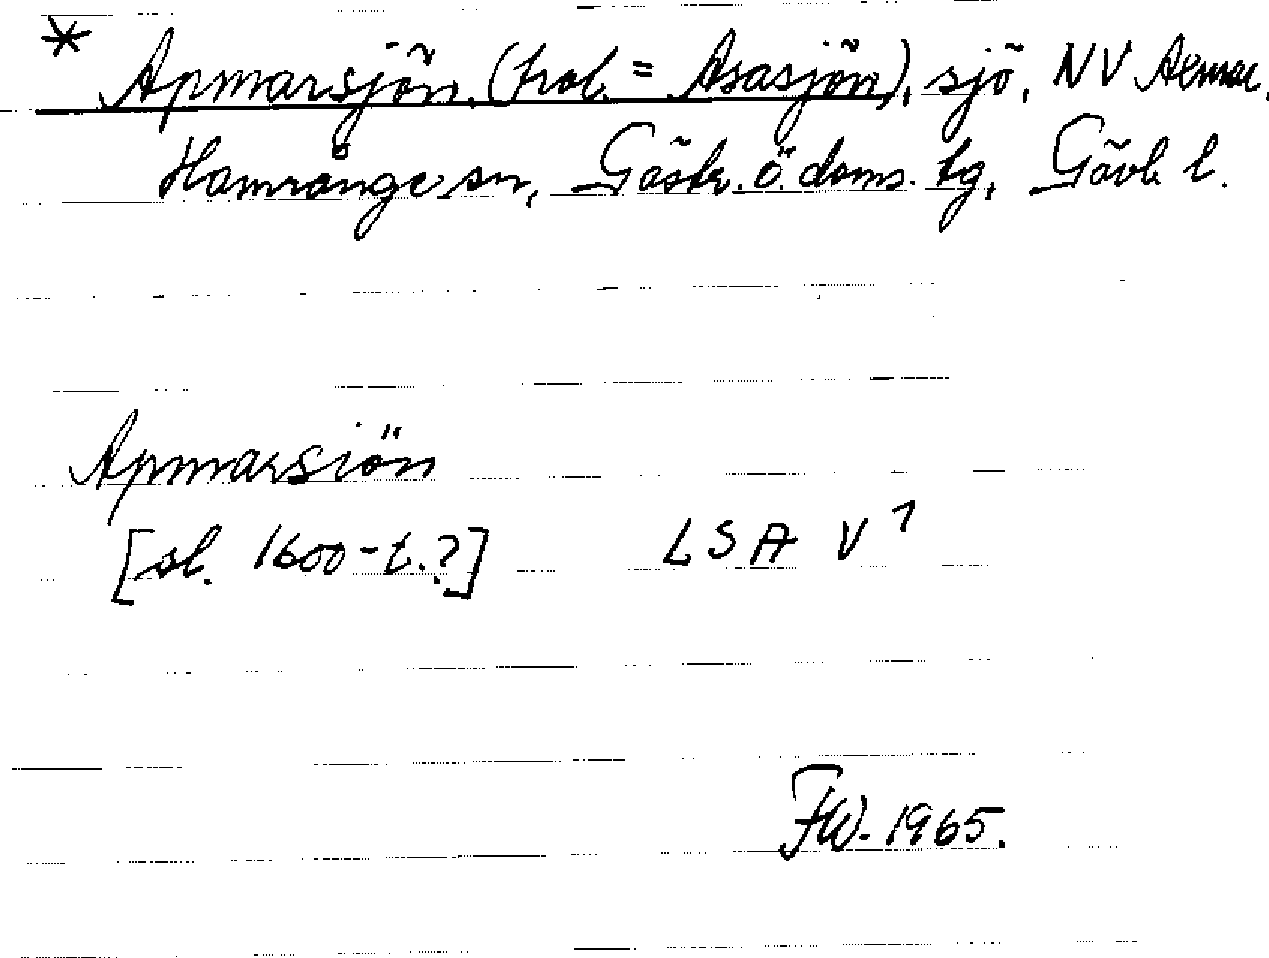 * Apmarsjön (trol. = Asasjön), sjö, NV
Hamrånge sn, Gästr. ö. doms. tg, Gävl. l.
Apmarsiön
[sl. 1600-t.?] LSA V 1
FW. 1965.